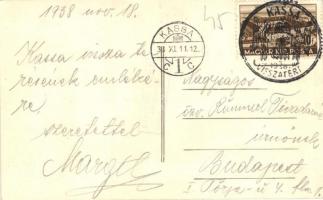 1938 nov. 18.
Kassa vissza té-
résének emléké-
re,
szeretettel
Margit
45
KASSA
38 XI. 11. 12.
1
KASSA
MAGYAR KIR. POSTA
VISSZATÉRT
1938
Nagyságos
özv.
úrnőnek
Budapest
I